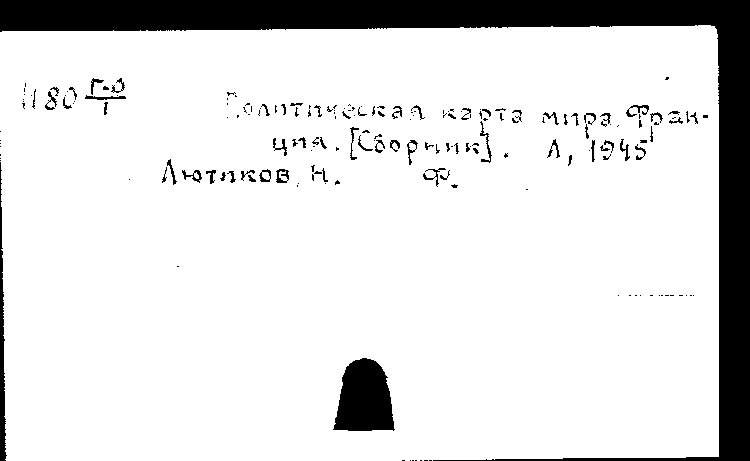 1180 Г-О/1
Политическая карта мира. Фран-
ция. [Сборник]. Л, 1945
Лютиков, Н. Ф.